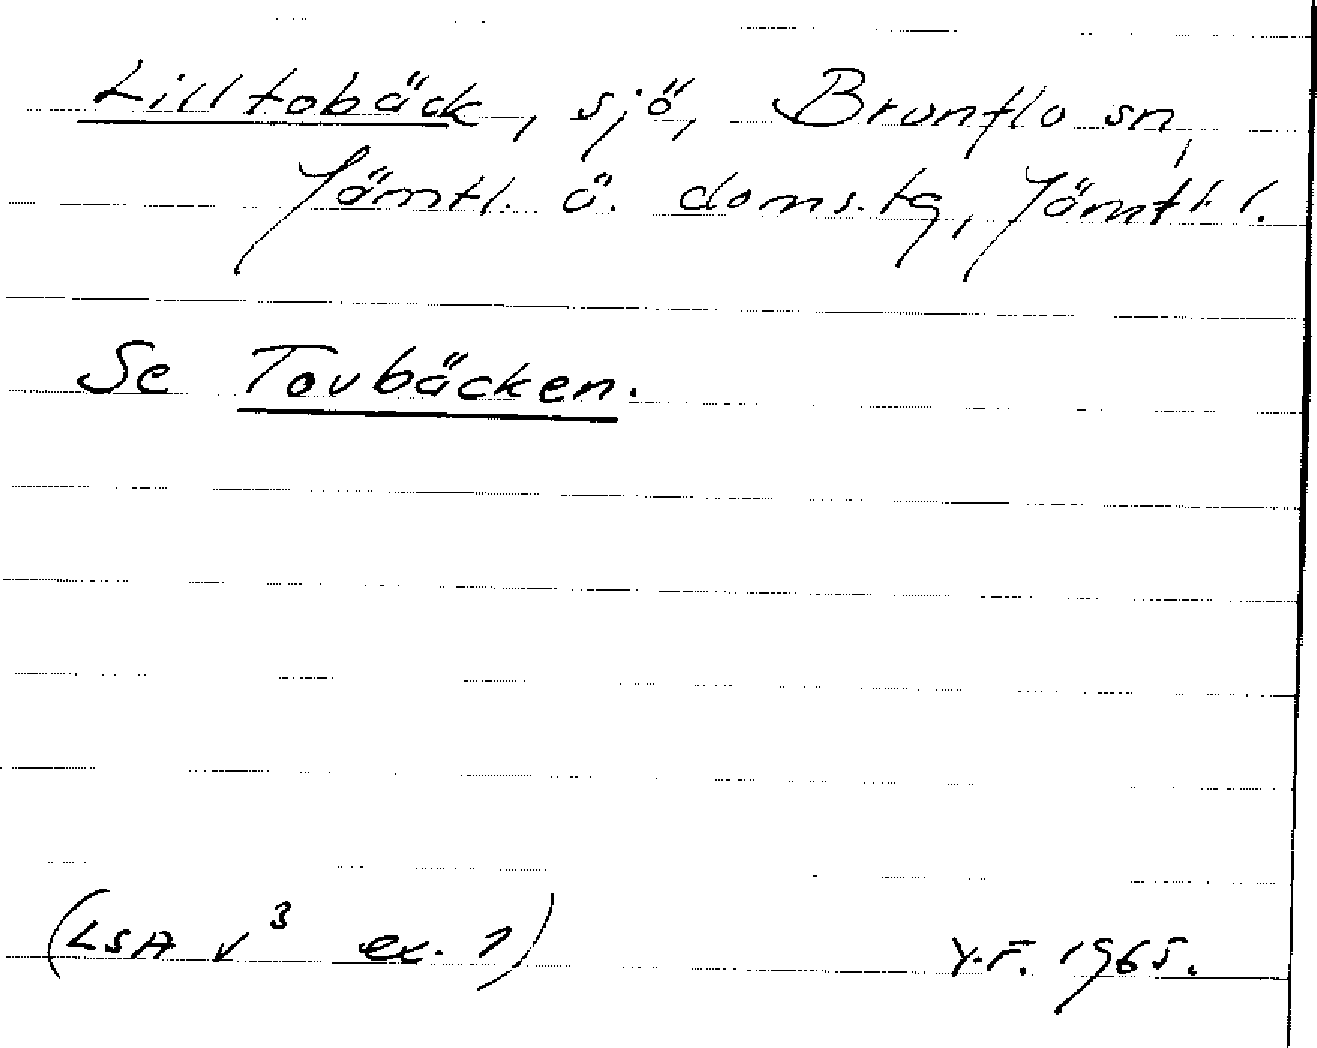 Lilltobäck, sjö, Brunflo sn,
Jämtl. ö. doms.tg, Jämtl. l.
Se Toubäcken.
(LSA v³ ex. 1) Y.F. 1965.